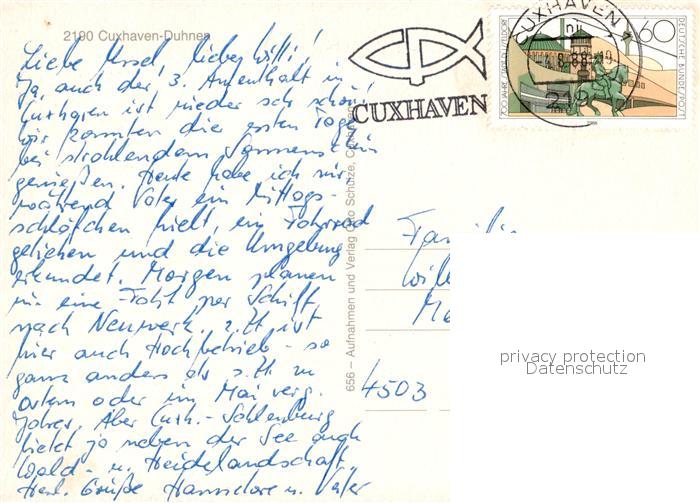 2190 Cuxhaven-Duhnen
Liebe Ursel, lieber Willi!
Ja, auch der 3. Aufenthalt in
Cuxhaven ist wieder sehr schön!
Wir konnten die ersten Tage
bei strahlendem Sonnenschein
genießen. Heute habe ich mir
während Vater ein Mittags-
schläfchen hielt, ein Fahrrad
geliehen und die Umgebung
erkundet. Morgen planen
wir eine Fahrt per Schiff
nach Neuwerk. z.Zt ist
hier auch Hochbetrieb - so
ganz anders als z.Zt zu
Ostern oder im Mai verg.
Jahres. Aber Cuxh.-Sahlenburg
bietet ja neben der See auch
Wald- u. Heidelandschaft.
Herzl. Grüße Hannelore u. Vater
656 – Aufnahmen und Verlag Otto Schulze,
CUXHAVEN
CUXHAVEN
8.88-19
60
DEUTSCHE BUNDESPOST
700 JAHRE STADT DÜSSELDORF
1988
Familie
4503
privacy protection
Datenschutz